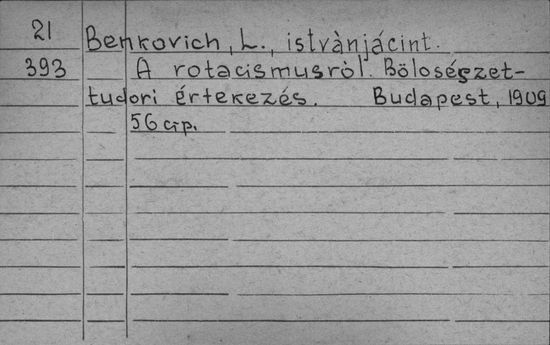 21 Benkovich, L., istvànjácint.
393 A rotacismusról. Bölosészet-
tudori értekezés. Budapest, 1909
56 стр.